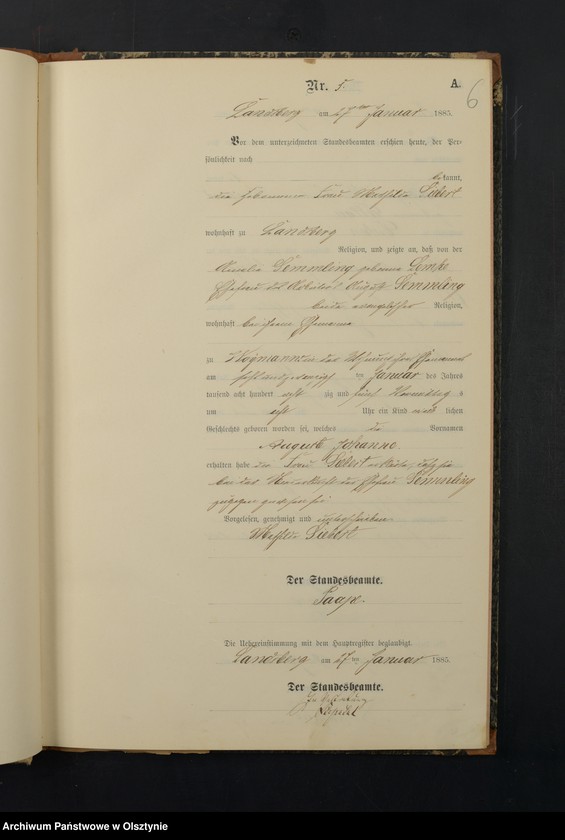 Nr. 5. A.
6
Landsberg am 27ten Januar 1885.
Vor dem unterzeichneten Standesbeamten erschien heute, der Per-
sönlichkeit nach
bekannt,
die Hebamme Frau Mathilde Siebert
wohnhaft zu Landsberg
Religion, und zeigte an, daß von der
Aurelie Semmling geborene Lemke
Ehefrau des Arbeiters August Semmling
beide evangelischer Religion,
wohnhaft bei ihrem Ehemanne
zu Woymanns in der Wohnung ihres Ehemannes
am ten Januar des Jahres
tausend acht hundert acht zig und fünf Vormittags
um acht Uhr ein Kind weib lichen
Geschlechts geboren worden sei, welches die Vornamen
Auguste Johanne
erhalten habe die Frau Siebert erklärte, daß sie
bei der Niederkunft der Ehefrau Semmling
zugegen gewesen sei
Vorgelesen, genehmigt und unterschrieben
Mathilde Siebert
Der Standesbeamte.
Die Uebereinstimmung mit dem Hauptregister beglaubigt.
Landsberg am 27ten Januar 1885.
Der Standesbeamte.
Archiwum Państwowe w Olsztynie